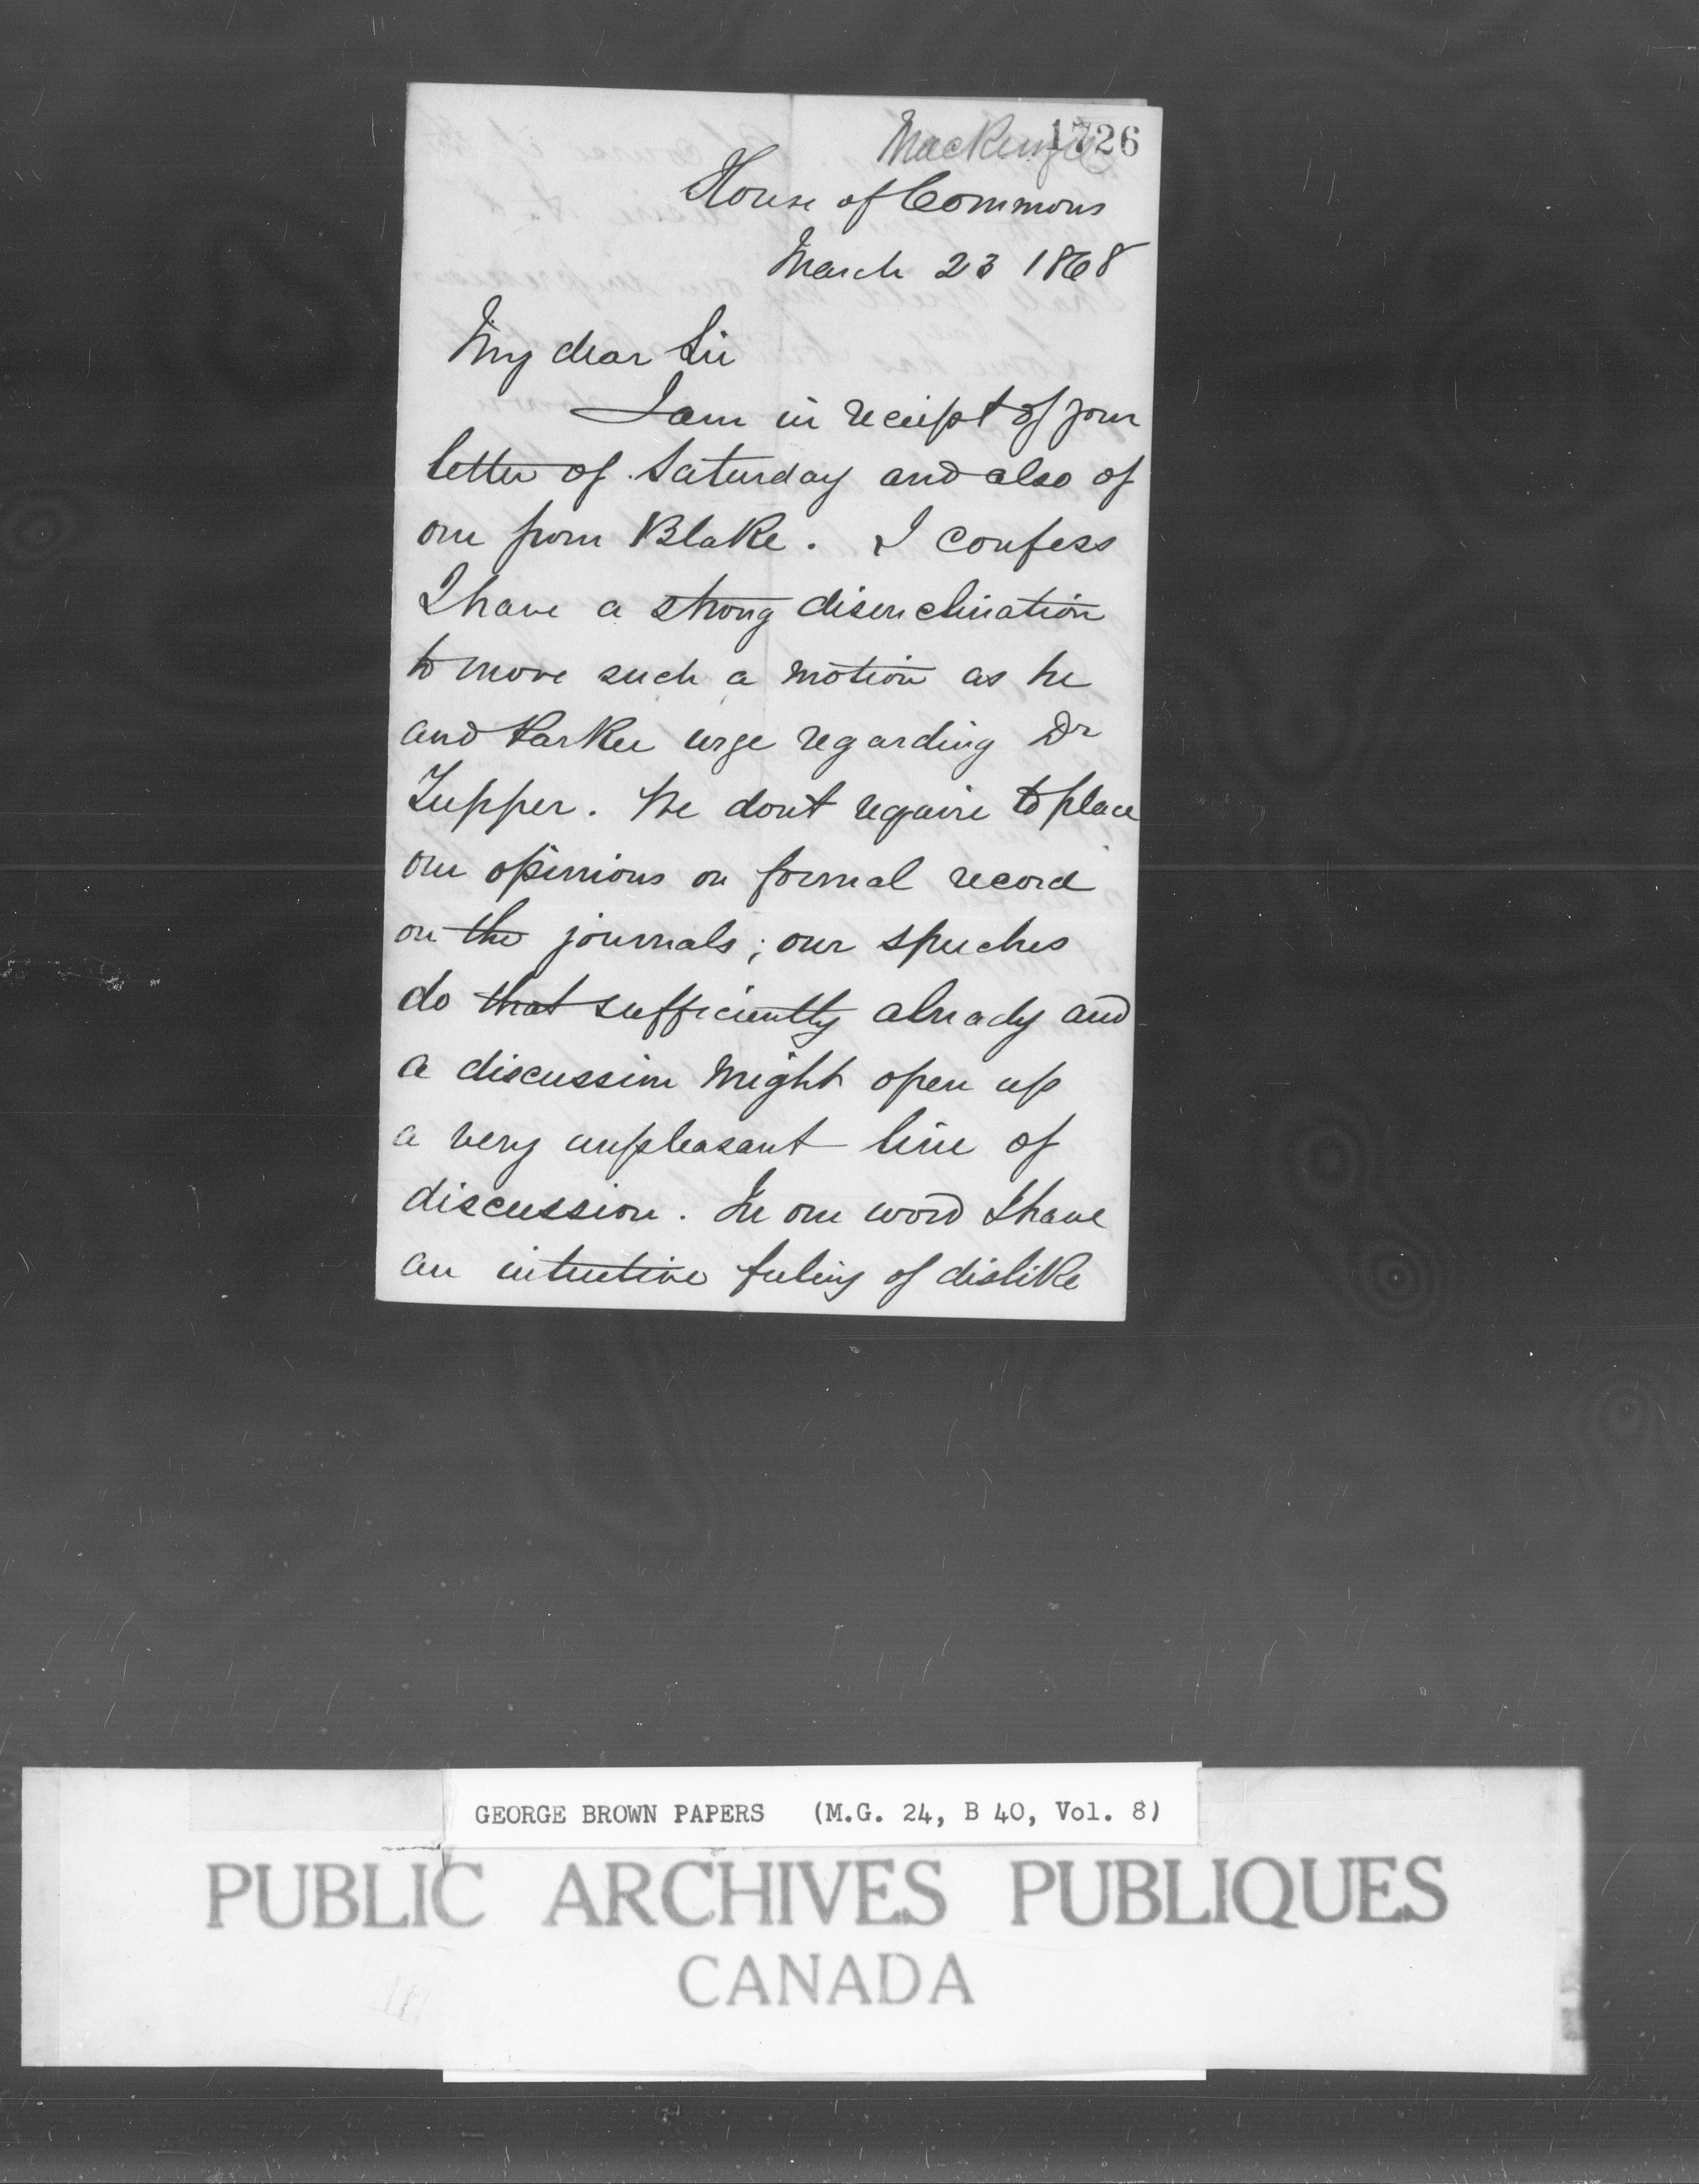 MacKenzie
1726
House of Commons
March 23 1868
My dear Sir
I am in receipt of your
letter of Saturday and also of
one from Blake. I confess
I have a strong disenclination
to move such a motion as he
and Parker urge regarding Dr
Tupper. We dont require to place
our opinions on formal record
on the journals; our speeches
do that sufficiently already and
a discussion might open up
a very unpleasant line of
discussion. In one word I have
an intuitive feeling of dislike
GEORGE BROWN PAPERS (M.G. 24, B 40, Vol. 8)
PUBLIC ARCHIVES PUBLIQUES
CANADA